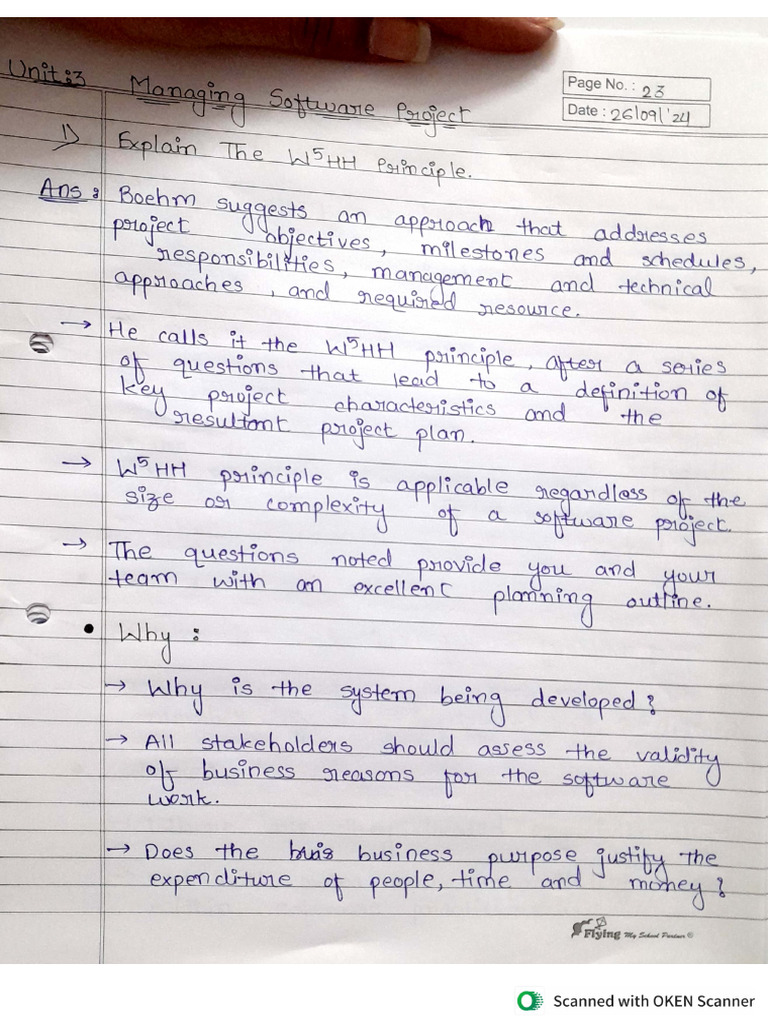 Unit:3 Managing Software Project
Page No. : 23
Date : 26/09/'24
1) Explain The W⁵HH Principle.
Ans : Boehm suggests an approach that addresses
project objectives, milestones and schedules,
responsibilities, management and technical
approaches, and required resource.
→ He calls it the W⁵HH principle, after a series
of questions that lead to a definition of
key project characteristics and the
resultant project plan.
→ W⁵HH principle is applicable regardless of the
size or complexity of a software project.
→ The questions noted provide you and your
team with an excellent planning outline.
• Why :
→ Why is the system being developed?
→ All stakeholders should assess the validity
of business reasons for the software
work.
→ Does the business purpose justify the
expenditure of people, time and money?
Flying My School Partner ©
Scanned with OKEN Scanner